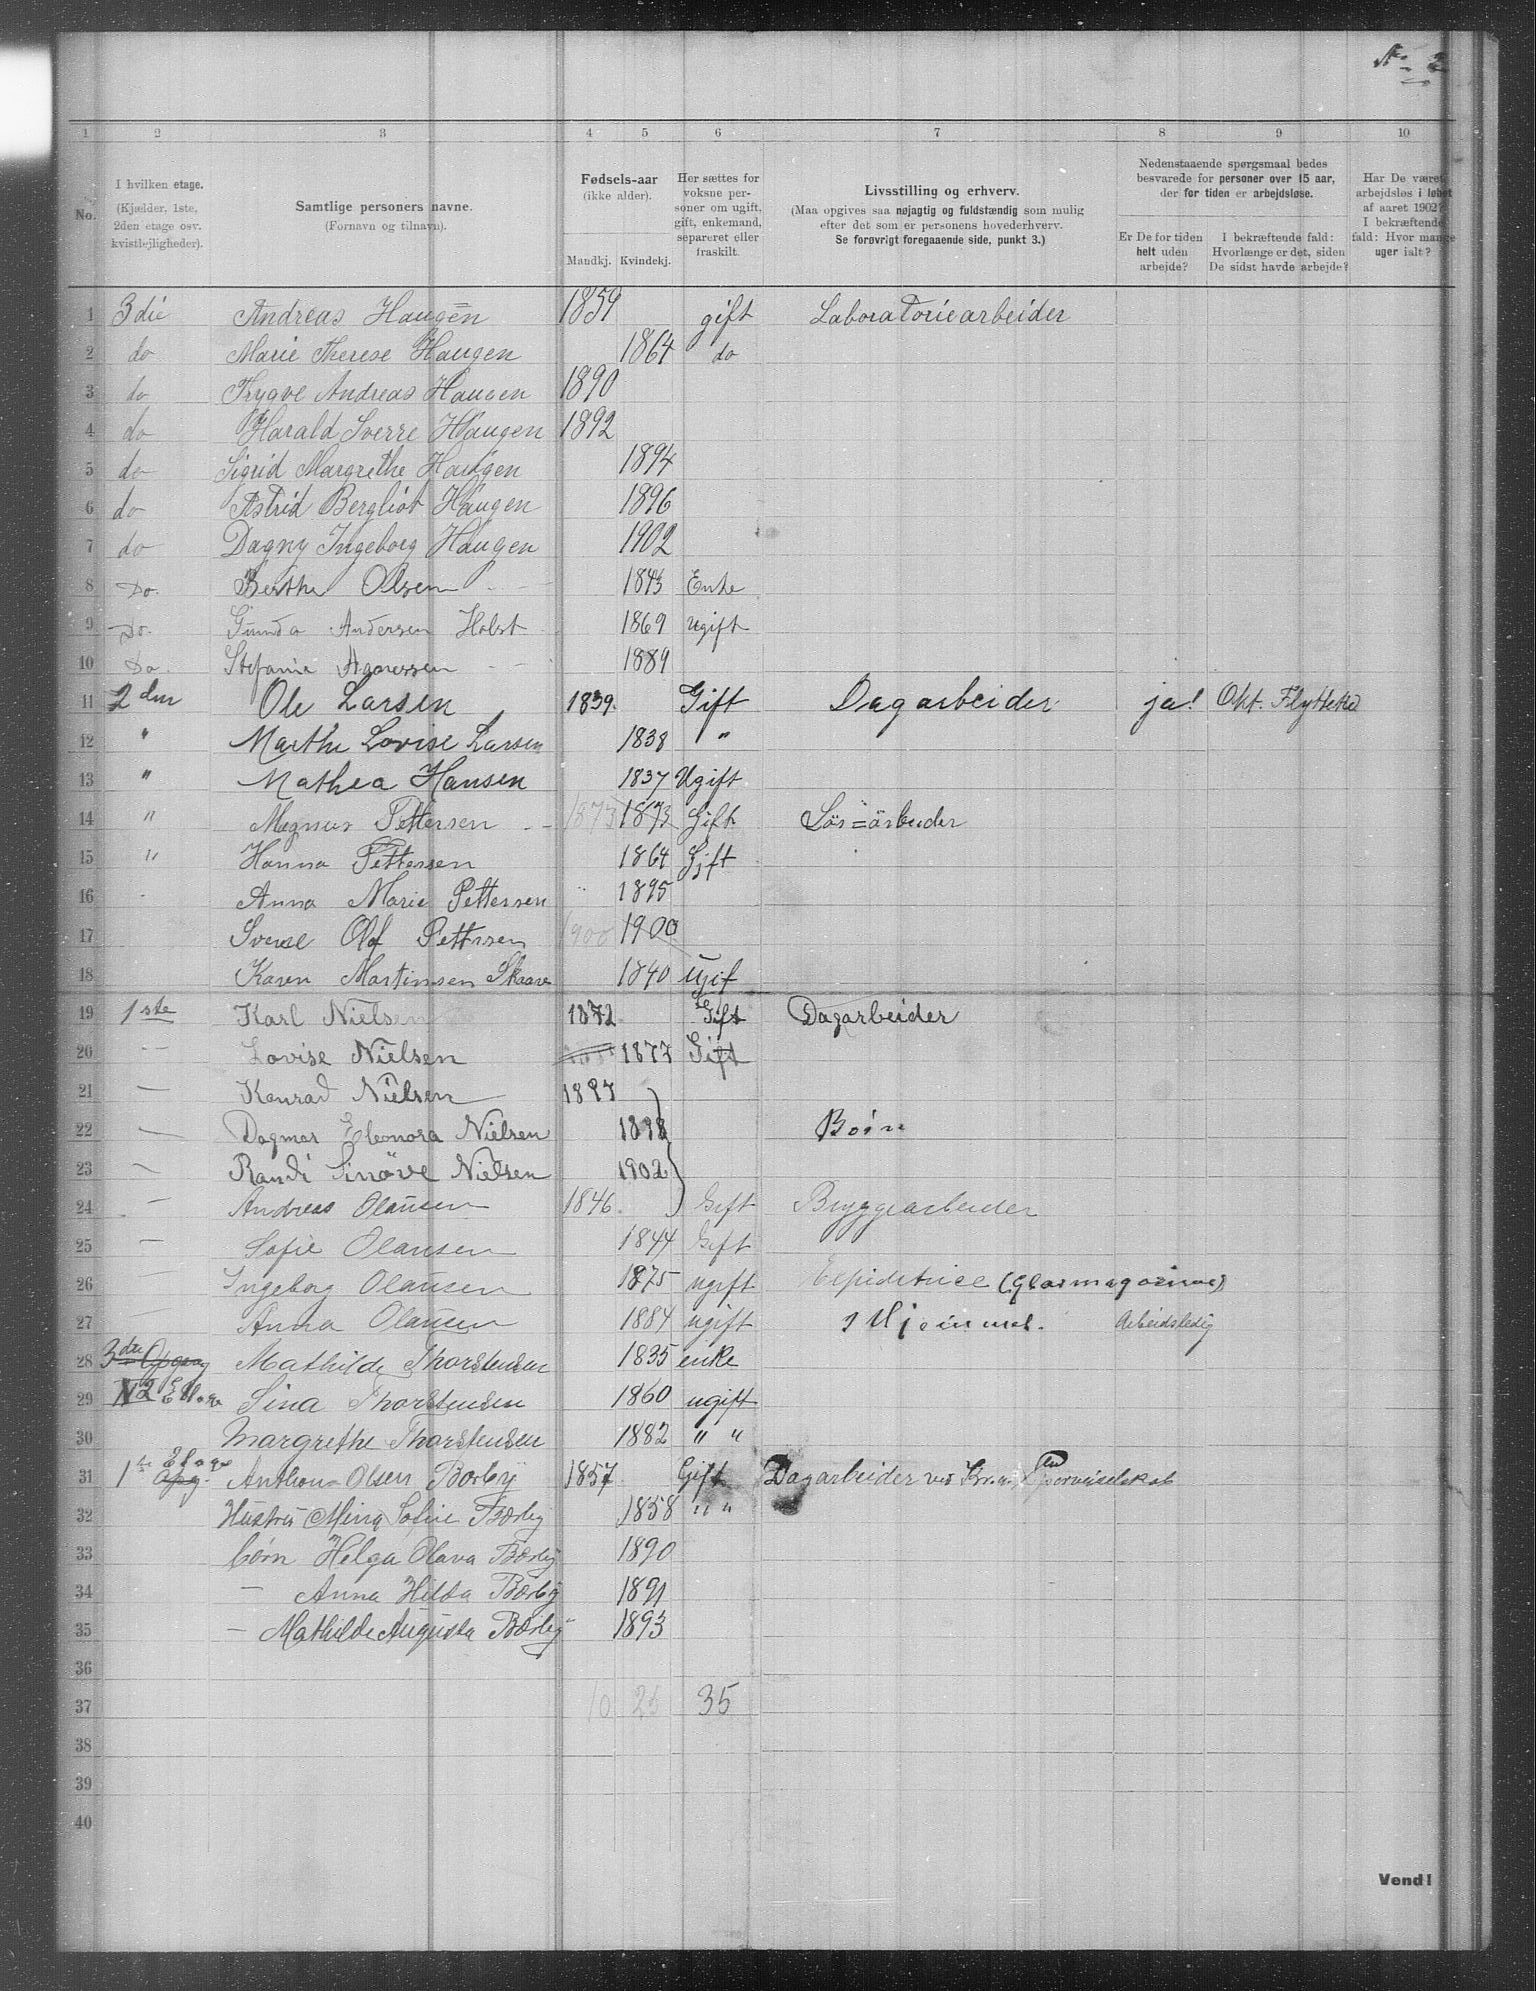 No. 2
1 2 3 4 5 6 7 8 9 10
No.
I hvilken etage. (Kjælder, 1ste, 2den etage osv. kvistlejligheder).
Samtlige personers navne. (Fornavn og tilnavn).
Fødsels-aar (ikke alder). Mandkj. Kvindekj.
Her sættes for voksne personer om ugift, gift, enkemand, separeret eller fraskilt.
Livsstilling og erhverv. (Maa opgives saa nøjagtig og fuldstændig som mulig efter det som er personens hovederhverv. Se forøvrigt foregaaende side, punkt 3.)
Nedenstaaende spørgsmaal bedes besvarede for personer over 15 aar, der for tiden er arbejdsløse.
Er De for tiden helt uden arbejde?
I bekræftende fald: Hvorlænge er det, siden De sidst havde arbejde?
Har De været arbejdsløs i løbet af aaret 1902? I bekræftende fald: Hvor mange uger ialt?
1 3die Andreas Haugen 1859 gift Laboratoriearbeider
2 do Marie Therese Haugen 1864 do
3 do Trygve Andreas Haugen 1890
4 do Harald Sverre Haugen 1892
5 do Sigrid Margrethe Haugen 1894
6 do Astrid Bergliot Haugen 1896
7 do Dagny Ingeborg Haugen 1902
8 Do. Berthe Olsen 1843 Enke
9 Do. Gunda Andersen Holst 1869 ugift
10 Do. Stefanie Agnessen 1889
11 2den Ole Larsen 1839. Gift Dagarbeider ja! Okt. Flytteka
12 " Marthe Lovise Larsen 1838 "
13 " Mathea Hansen 1837 Ugift
14 " Magnus Pettersen 1873 1873 Gift Løs=arbeider
15 " Hanna Pettersen 1864 Gift
16 Anna Marie Pettersen 1895
17 Sverre Olaf Pettersen 1900 1900
18 Karen Martinsen Skaare 1840 Ugif
19 1ste Karl Nielsen 1872 Gift Dagarbeider
20 Lovise Nielsen 1877 Gift
21 Konrad Nielsen 1897
22 Dagmar Eleonora Nielsen 1898 Børn
23 Randi Sinøve Nielsen 1902
24 Andreas Olausen 1846 Gift Bryggearbeider
25 Sofie Olausen 1844 Gift
26 Ingeborg Olausen 1875 ugift Expiditrice (Glasmagasinet)
27 Anna Olausen 1884 ugift i Hjemmet. Arbeidsledig
28 3die Opgang Mathilde Thorstensen 1835 enke
29 N2 Etage Sina Thorstensen 1860 ugift
30 Margrethe Thorstensen 1882 " "
31 1ste Etage Opg. Anthon Olsen Børby 1857 Gift Dagarbeider ved Kr.a
32 Hustru Mina Sofie Børby 1858 " "
33 børn Helga Olava Børby 1890
34 — Anna Hilda Børby 1891
35 — Mathilde Augusta Børby 1893
36
37 10 25 35
38
39
40
Vend!